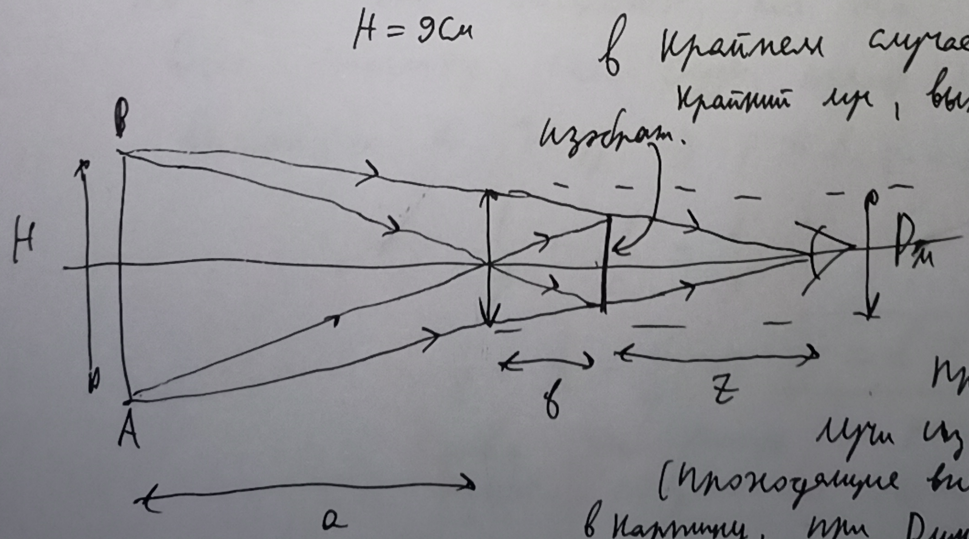 H = 9см
в крайнем случае
крайний луч, вых
изображ.
B
H
Dм
b
z
A
a
пр
лучи из
(проходящие
в картину, при D